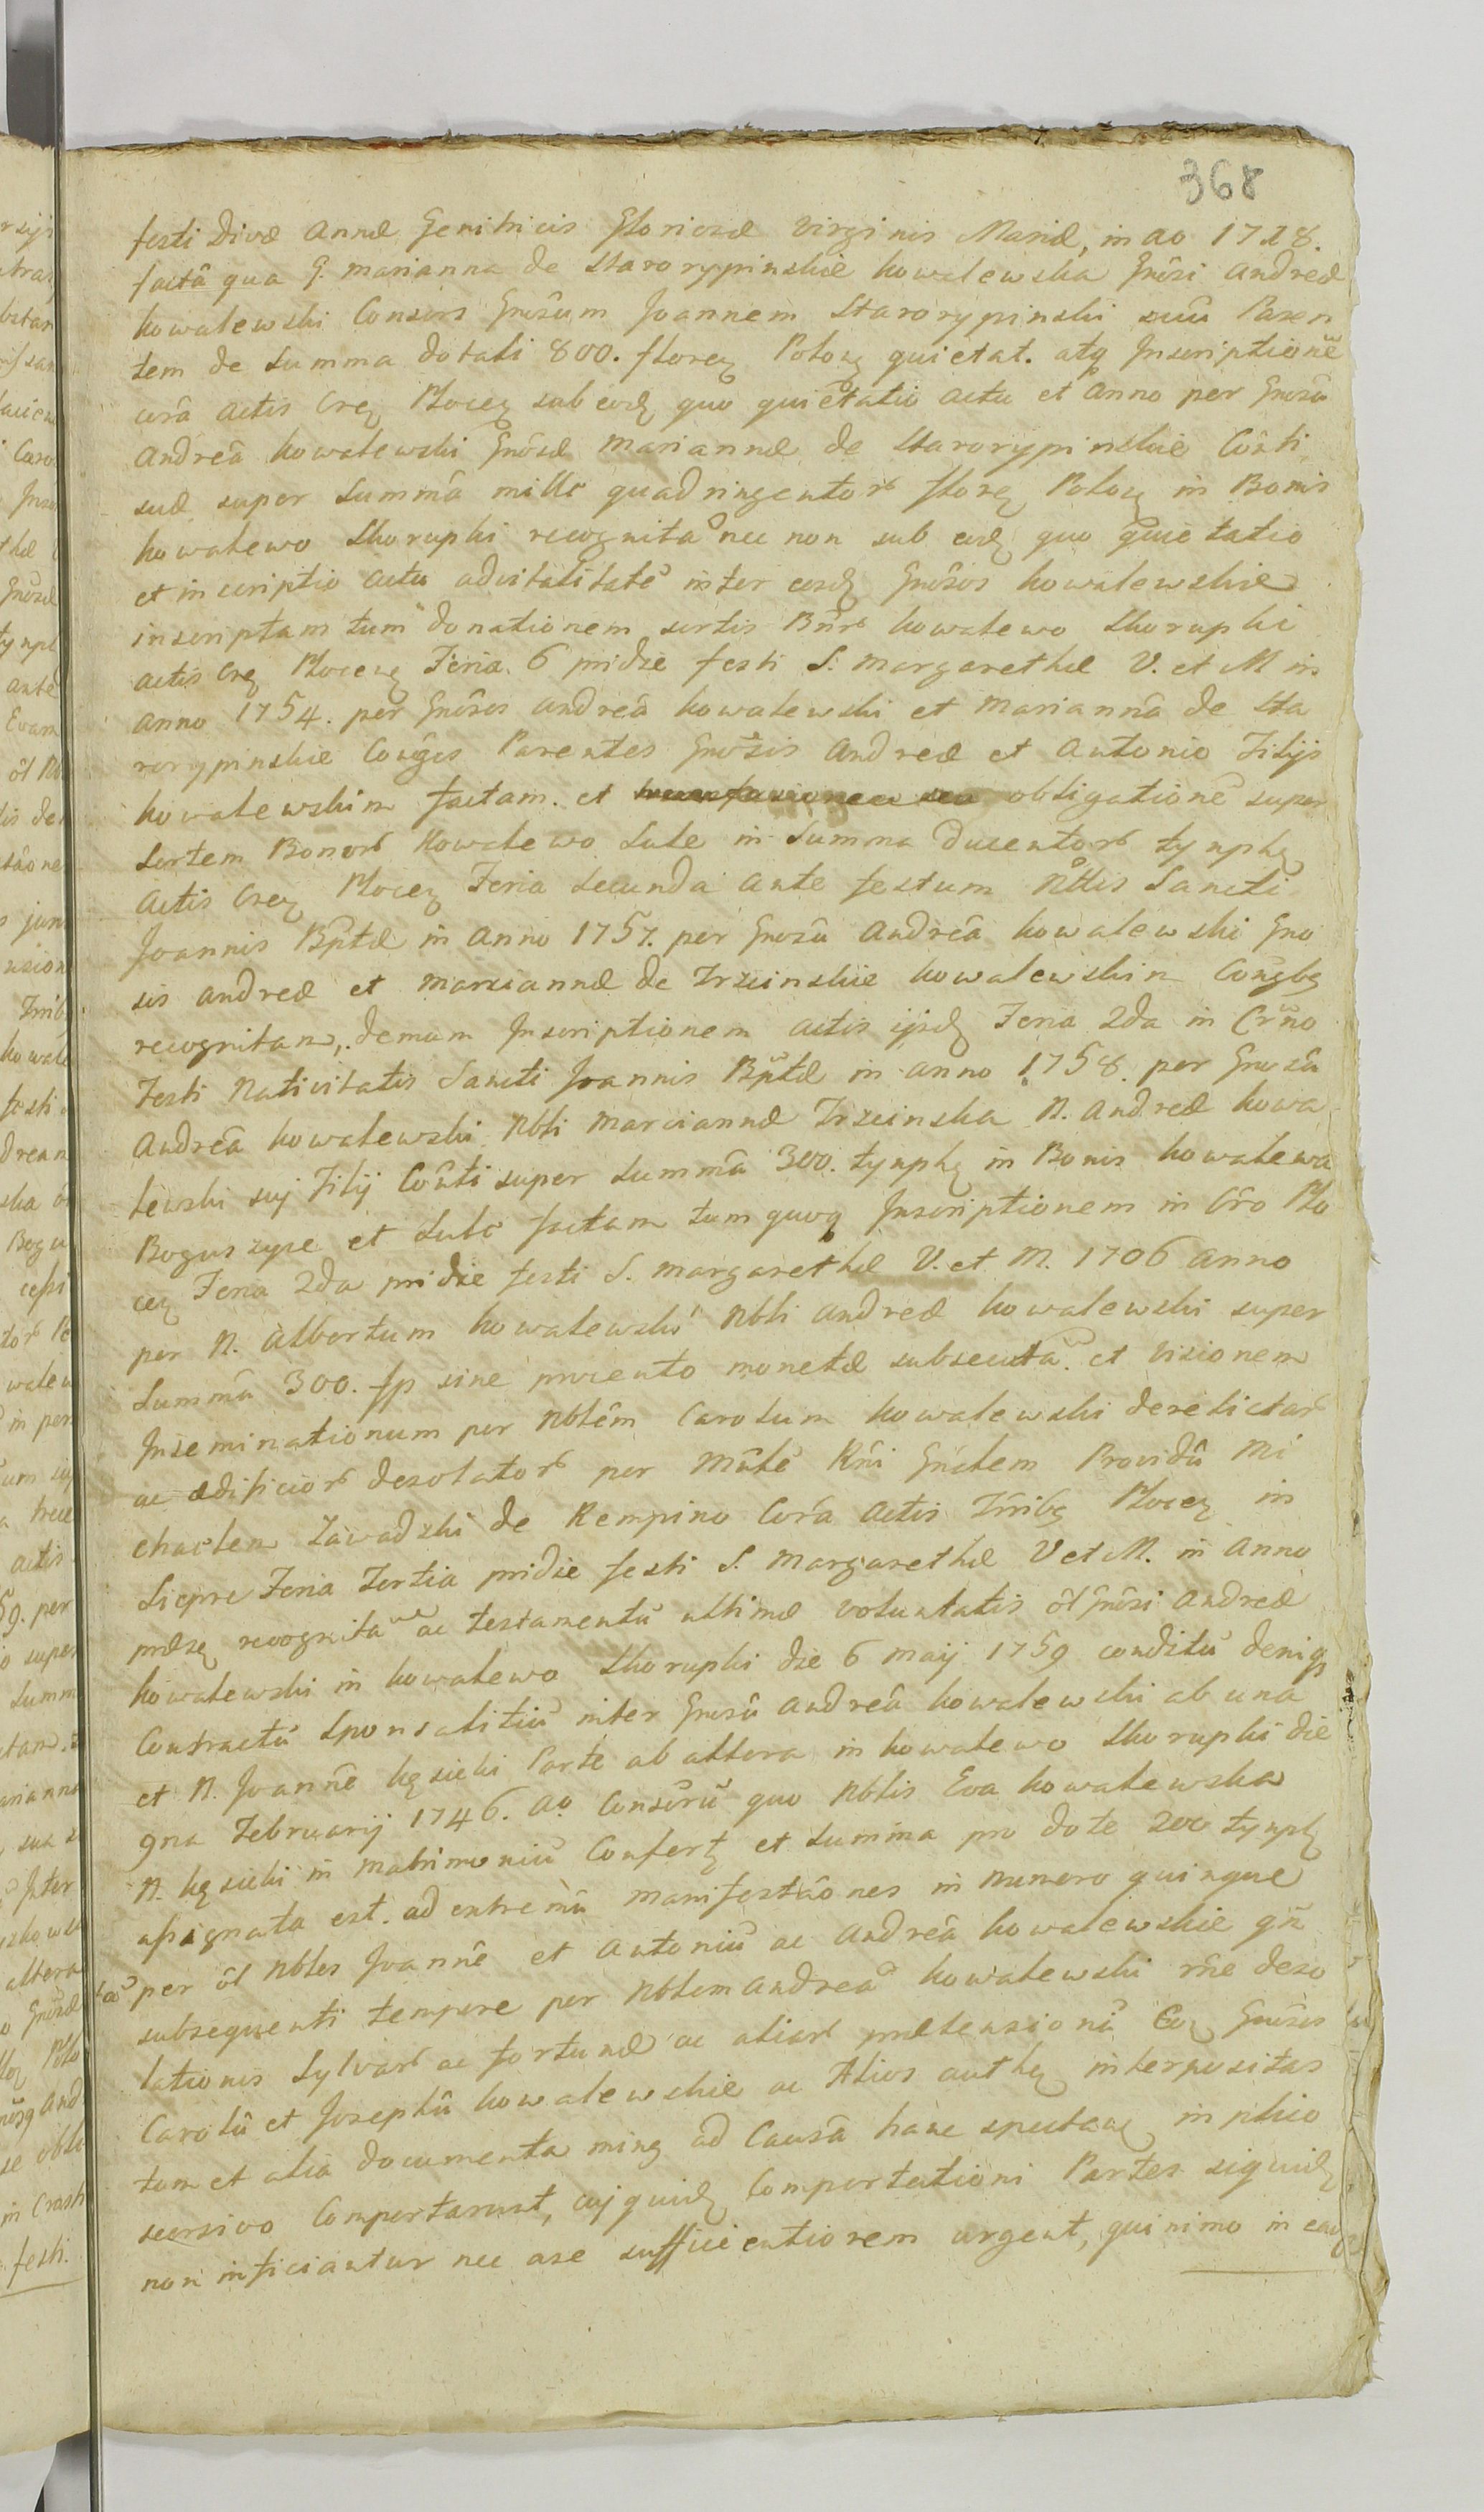 368
festi Divæ Annæ Genitricis Gloriosæ Virginis Mariæ, in ao 1728.
factâ qua G. Marianna de Starorypinskie Kowalewska Gnôsi Andreæ
Kowalewski Consors Gnôsum Joannem Starorypinski suũ Paren
tem de Summa dotali 800. floreɳ Poloɳ quietat. atq Inscriptionẽ
corâ Actis Creɳ Ploceɳ sub eodɳ quo quietatio actu et Anno per Gnosũ
Andreâ Kowalewski Gnôsæ Mariannæ de Starorypinskie Coñti
suæ super Summâ mille quadringentor floreɳ Poloɳ in Bonis
Kowalewo Skorupki recognitã nec non sub eodɳ quo quietatio
et inscriptio actu advitalitatẽ inter eosdɳ Gnôsos Kowalewskie
inscriptam tum donationem sortis Bnȓ Kowalewo Skorupki
actis Creɳ Ploceɳ Feria 6 pridie festi S. Margarethæ V. et M in
anno 1754. per Gnôsos Andreâ Kowalewski et Mariannâ de Sta
rorypinskie Conĝes Parentes Gnôsis Andreæ et Antonio Filijs
Kowalewskim factam. et obligationẽ super
Sortem Bonor Kowalewo Lute in Summa ducentor tynphɳ
Actis Creɳ Ploceɳ Feria Secunda ante festum Nttis Sancti
Joannis Bptæ in Anno 1757. per Gnosũ Andreâ Kowalewski Gno
sis Andreæ et Marciannæ de Trzcinskie Kowalewskim Conĝbɋ
recognitam, demum Inscriptionem actis ijsdɳ Feria 2da in Crño
Festi Nativitatis Sancti Joannis Bptæ in anno 1758. per Gnosũ
Andreâ Kowalewski Nbli Marciannæ Trzcinska N. Andreæ Kowa
lewski suj Filij Coñti super Summâ 300. tynphɳ in Bonis Kowalewo
Boguszyce et Lute factam tum quoq Inscriptionem in Cro Plo
ceɳ Feria 2da pridie festi S. Margarethæ V. et M. 1706 anno
per N. Albertum Kowalewski Nbli Andreæ Kowalewski super
Summâ 300. fp sine procento monetæ subsecutã. et Visionem
Inseminationum per Nblêm Carolum Kowalewski derelictar
ac ædificior desolator per Mñtê Rñi Gñalem Providũ Mi
chaelem Zawadzki de Rempino Corâ Actis Trribɋ Ploceɳ in
Siepre Feria Tertia pridie festi S. Margarethæ V et M. in Anno
præsɳ recognitã ac testamentũ ultimæ voluntatis ôl Gnôsi Andreæ
Kowalewski in Kowalewo Skorupki die 6 maij 1759 conditũ deniq
Contractũ Sponsalitiũ inter Gnosũ Andreâ Kowalewski ab una
et N. Joannê Kęsicki Parte ab altera in Kowalewo Skorupki die
9na Februarij 1746. Ao Conserũ quo Nblis Eva Kowalewska
N. Kęsicki in matrimoniũ Confertɳ et Summa pro dote 200 tynphɳ
assignata est. ad extremũ manifestâones in numero quinque
per ôl Nbles Joannê et Antoniũ ac Andreâ Kowalewskie
subsequenti tempore per Nblem Andreâ Kowalewski rñe deso
lationis Sylvar ac fortunæ ac aliar prætensionũ Gnôsos
Carolũ et Josephũ Kowalewskie ac Alios authɳ interpositas
tum et alia documenta ad Causâ hanc spectanɳ in
Comportarunt, cuj quidɳ Comportationi Partes siquidɳ
non inficiantur nec ase sufficientiorem urgent, quinimo in eaɳ